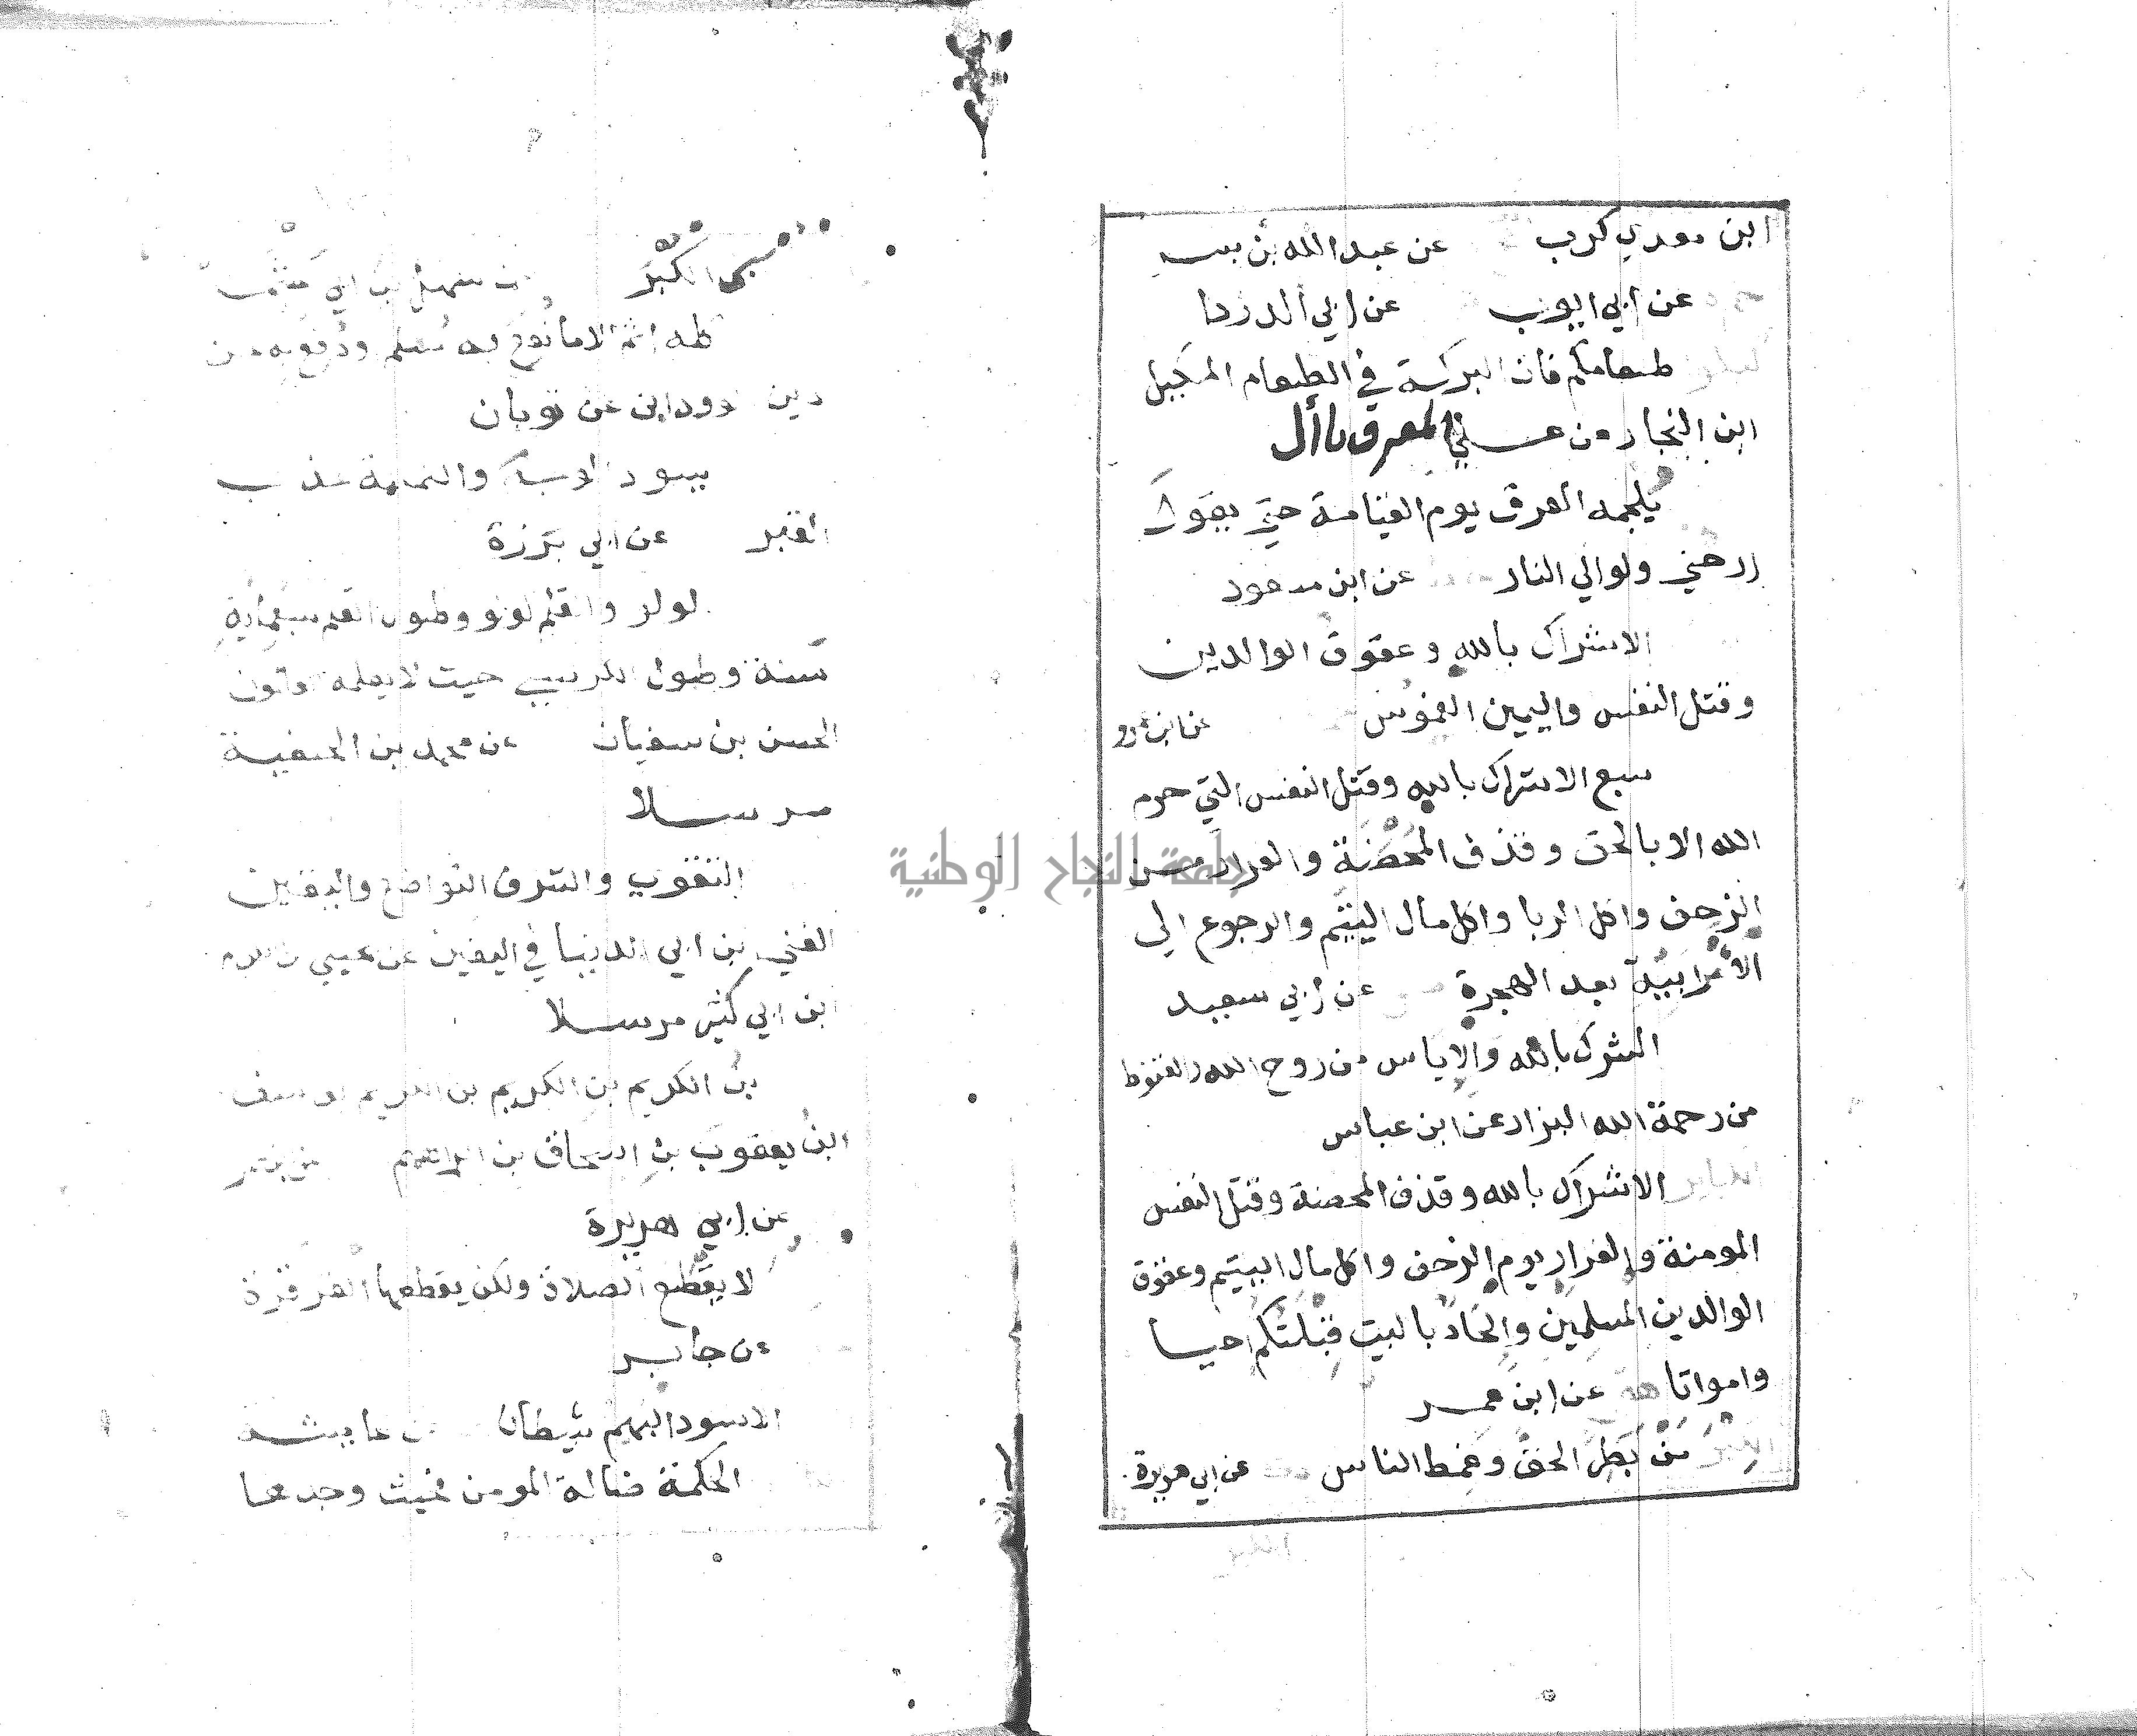 ابن معدي كرب عن عبد الله بن بسر
عن ابي ايوب عن ابي الدردا
طعامكم فان البركة في الطعام المكيل
ابن النجار عن علي المعرف بأل
يلجمه العرق يوم القيامة حتي يقول
ارحني ولو الي النار عن ابن مسعود
الاشراك بالله وعقوق الوالدين
وقتل النفس واليمين الغموس عن ابن عمرو
سبع الاشراك بالله وقتل النفس التي حرم
الله الا بالحق وقذف المحصنة والفرار من
الزحف واكل الربا واكل مال اليتيم والرجوع الي
الأعرابية بعد الهجرة عن ابي سعيد
الشرك بالله والاياس من روح الله والقنوط
من رحمة الله البزار عن ابن عباس
الكباير الاشراك بالله وقذف المحصنة وقتل النفس
المومنة والفرار يوم الزحف واكل مال اليتيم وعقوق
الوالدين المسلمين والحاد بالبيت قبلتكم احيا
وامواتا هق عن ابن عمر
الكبر من بطر الحق وغمط الناس عن ابي هريرة
الكبر سهل بن ابي حثمة
كله اثم الا ما نفع به مسلم ودفع به عن
دين الروياني عن ثوبان
والنميمة عذاب
القبر عن ابي برزة
لولو والقلم لولو وطول القلم سبعماية
سنة وطول الكرسي حيث لا يعلمه
الحسن بن سفيان عن محمد بن الحنفية
مرسلا
التقوي والشرف التواضع واليقين
الغني ابن ابي الدنيا في اليقين عن يحيي
ابن ابي كثير مرسلا
بن الكريم بن الكريم بن الكريم يوسف
ابن يعقوب بن اسحاق بن ابراهيم
عن ابي هريرة
لا يقطع الصلاة ولكن يقطعها القرقرة
عن جابر
الاسود البهيم شيطان عن عايشة
الحكمة ضالة المومن فحيث وجدها
جامعة النجاح الوطنية